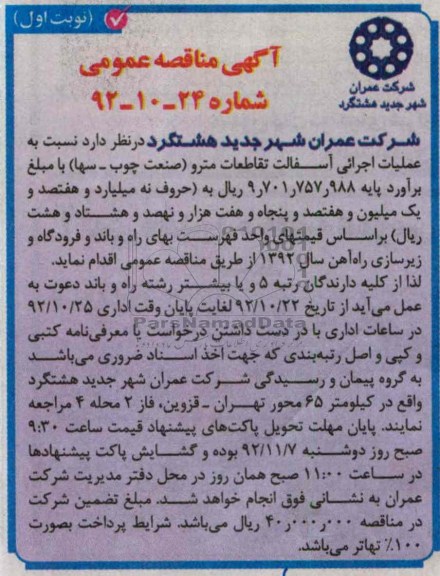 (نوبت اول)
شرکت عمران
شهر جدید هشتگرد
آگهی مناقصه عمومی
شماره ۲۴-۱۰-۹۲
شرکت عمران شهر جدید هشتگرد درنظر دارد نسبت به
عملیات اجرائی آسفالت تقاطعات مترو (صنعت چوب ـ سها) با مبلغ
برآورد پایه ۹٫۷۰۱٫۷۵۷٫۹۸۸ ریال به (حروف نه میلیارد و هفتصد و
یک میلیون و هفتصد و پنجاه و هفت هزار و نهصد و هشتاد و هشت
ریال) براساس قیمتهای واحد فهرست بهای راه و باند و فرودگاه و
زیرسازی راه‌آهن سال ۱۳۹۲ از طریق مناقصه عمومی اقدام نماید.
لذا از کلیه دارندگان رتبه ۵ و یا بیشتر رشته راه و باند دعوت به
عمل می‌آید از تاریخ ۹۲/۱۰/۲۲ لغایت پایان وقت اداری ۹۲/۱۰/۲۵
در ساعات اداری با در دست داشتن درخواست یا معرفی‌نامه کتبی
و کپی و اصل رتبه‌بندی که جهت اخذ اسناد ضروری می‌باشد
به گروه پیمان و رسیدگی شرکت عمران شهر جدید هشتگرد
واقع در کیلومتر ۶۵ محور تهران ـ قزوین، فاز ۲ محله ۴ مراجعه
نمایند. پایان مهلت تحویل پاکت‌های پیشنهاد قیمت ساعت ۹:۳۰
صبح روز دوشنبه ۹۲/۱۱/۷ بوده و گشایش پاکت پیشنهادها
در ساعت ۱۱:۰۰ صبح همان روز در محل دفتر مدیریت شرکت
عمران به نشانی فوق انجام خواهد شد. مبلغ تضمین شرکت
در مناقصه ۴۰٫۰۰۰٫۰۰۰ ریال می‌باشد. شرایط پرداخت بصورت
۱۰۰٪ تهاتر می‌باشد.
ParsNamadData